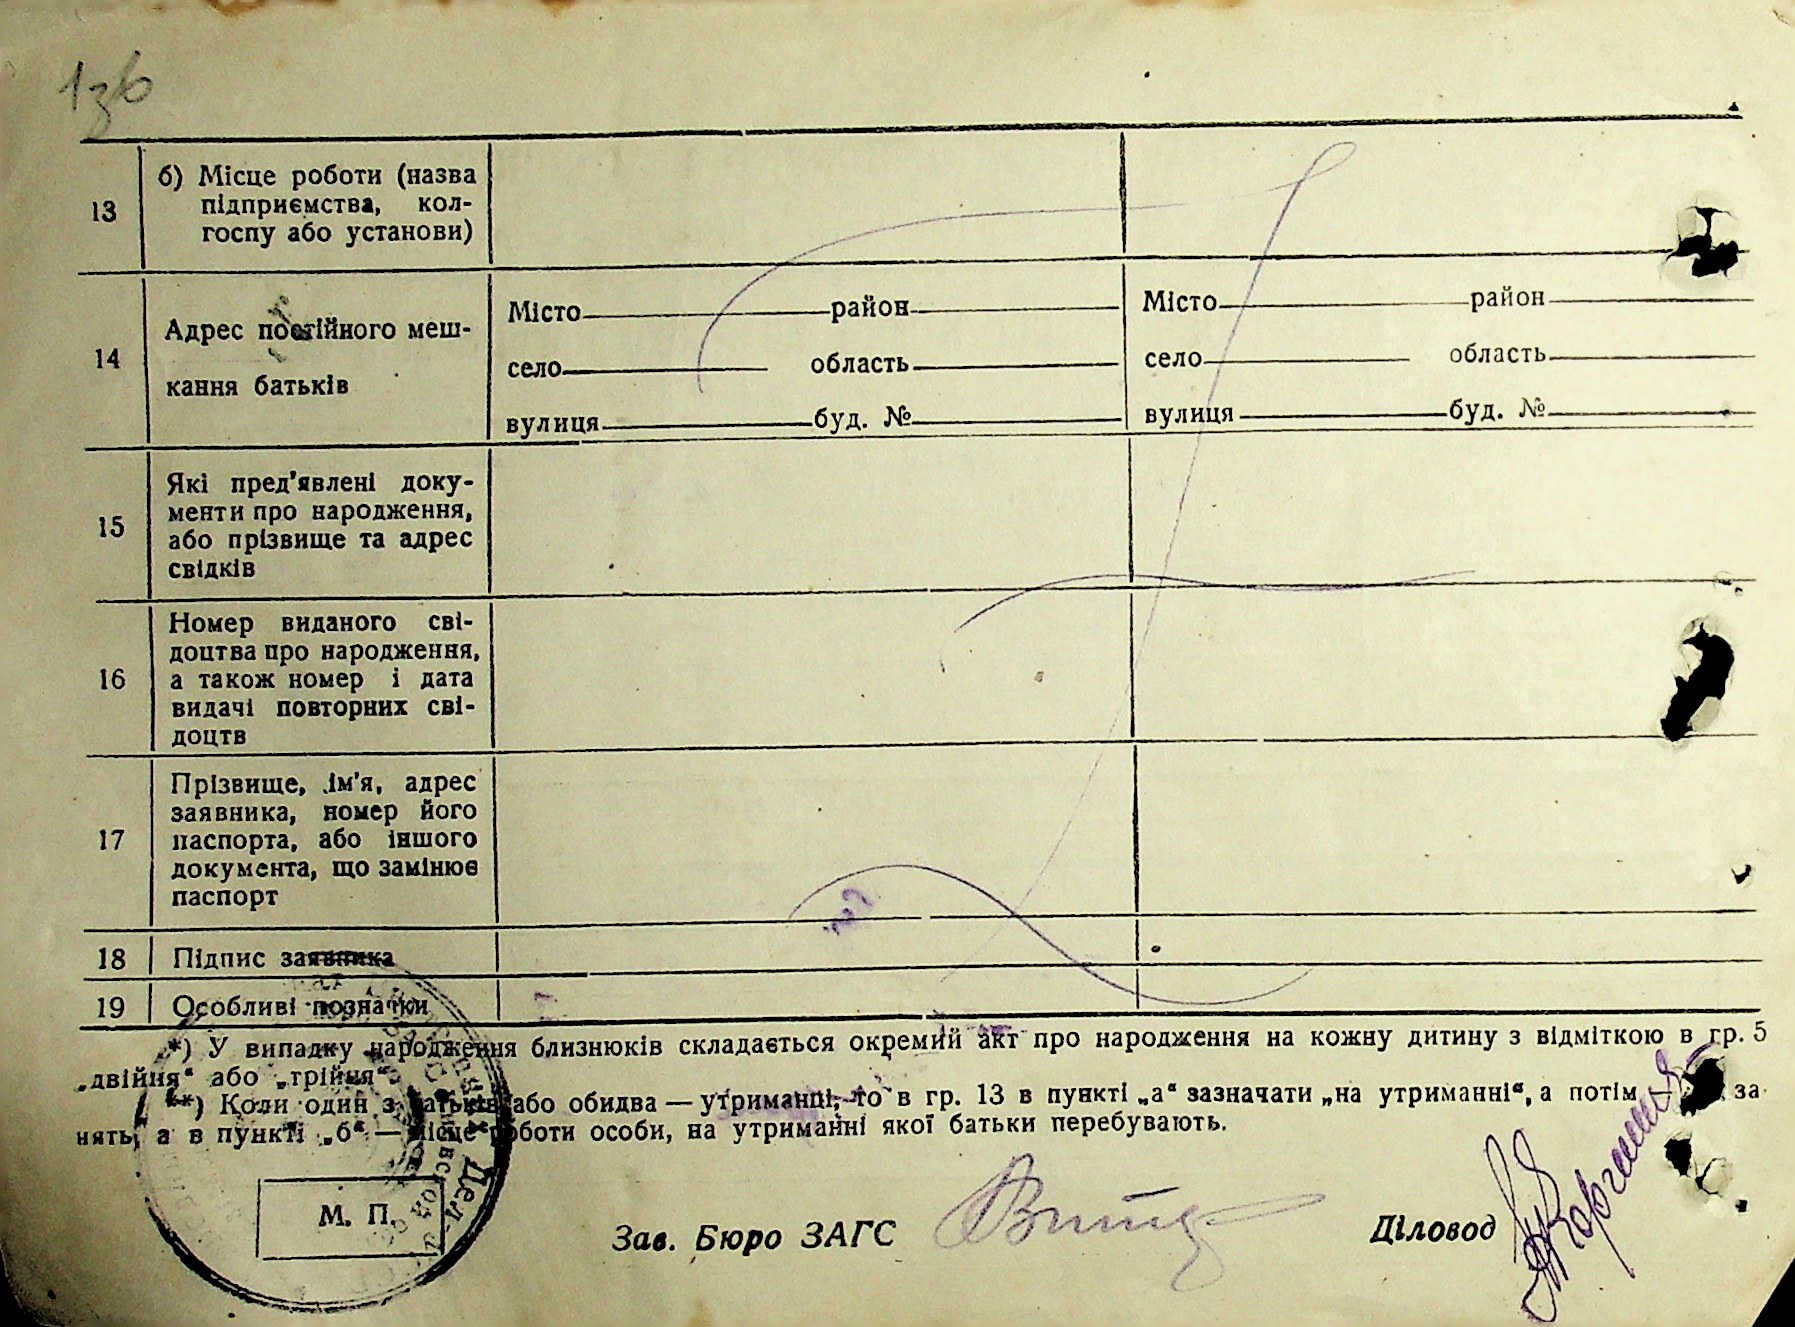 13
б) Місце роботи (назва
підприємства, кол-
госпу або установи)
14
Адрес постійного меш-
кання батьків
Місто район
село область
вулиця буд. №
Місто район
село область
вулиця буд. №
15
Які пред'явлені доку-
менти про народження,
або прізвище та адрес
свідків
16
Номер виданого сві-
доцтва про народження,
а також номер і дата
видачі повторних сві-
доцтв
17
Прізвище, ім'я, адрес
заявника, номер його
паспорта, або іншого
документа, що замінює
паспорт
18 Підпис заявника
19 Особливі позначки
*) У випадку народження близнюків складається окремий акт про народження на кожну дитину з відміткою в гр. 5
„двійня“ або „трійня“.
**) Коли один з батьків або обидва — утриманці, то в гр. 13 в пункті „а“ зазначати „на утриманні“, а потім за
нять, а в пункті „б“ — місце роботи особи, на утриманні якої батьки перебувають.
М. П.
Зав. Бюро ЗАГС
Діловод